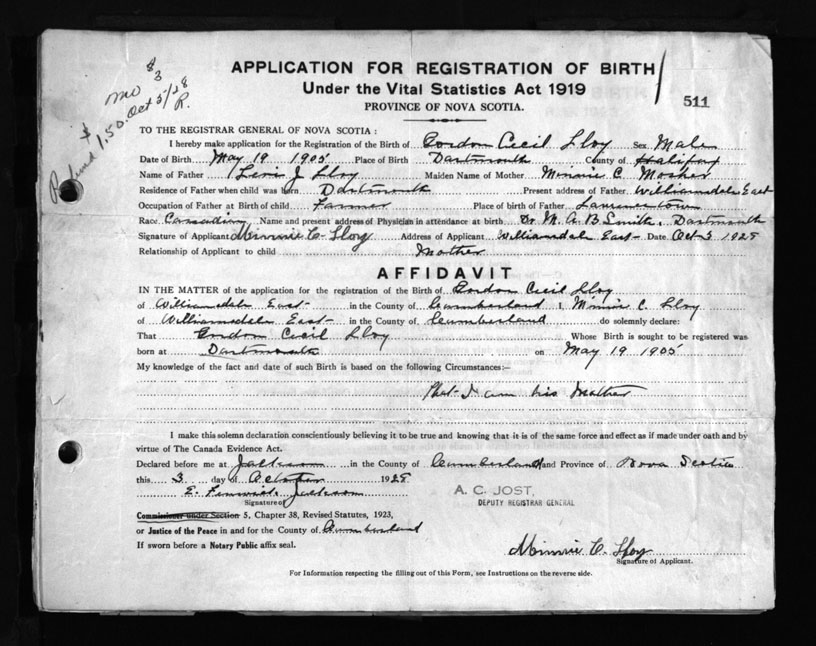 APPLICATION FOR REGISTRATION OF BIRTH
Under the Vital Statistics Act 1919
PROVINCE OF NOVA SCOTIA.
511
MO 83
1.50 Oct 5/28
R.
TO THE REGISTRAR GENERAL OF NOVA SCOTIA :
I hereby make application for the Registration of the Birth of Gordon Cecil Lloy Sex Male
Date of Birth May 19 1905 Place of Birth Dartmouth County of Halifax
Name of Father Levi J Lloy Maiden Name of Mother Minnie C. Mosher
Residence of Father when child was born Dartmouth Present address of Father Williamsdale East
Occupation of Father at Birth of child Farmer Place of birth of Father Lawrencetown
Race Canadian Name and present address of Physician in attendance at birth Dr M. A. B. Smith, Dartmouth
Signature of Applicant Minnie C. Lloy Address of Applicant Williamsdale East Date Oct 3 1928
Relationship of Applicant to child Mother
AFFIDAVIT
IN THE MATTER of the application for the registration of the Birth of Gordon Cecil Lloy
of Williamsdale East in the County of Cumberland I, Minnie C. Lloy
of Williamsdale East in the County of Cumberland do solemnly declare:
That Gordon Cecil Lloy Whose Birth is sought to be registered was
born at Dartmouth on May 19 1905
My knowledge of the fact and date of such Birth is based on the following Circumstances:—
That I am his Mother
I make this solemn declaration conscientiously believing it to be true and knowing that it is of the same force and effect as if made under oath and by
virtue of The Canada Evidence Act.
Declared before me at Jackson in the County of Cumberland and Province of Nova Scotia
this 3 day of October 1928
E. Fenwick Jackson
Signature of
A. C. JOST,
DEPUTY REGISTRAR GENERAL
Commissioner under Section 5, Chapter 38, Revised Statutes, 1923,
or Justice of the Peace in and for the County of Cumberland
If sworn before a Notary Public affix seal.
Minnie C. Lloy
Signature of Applicant.
For Information respecting the filling out of this Form, see Instructions on the reverse side.